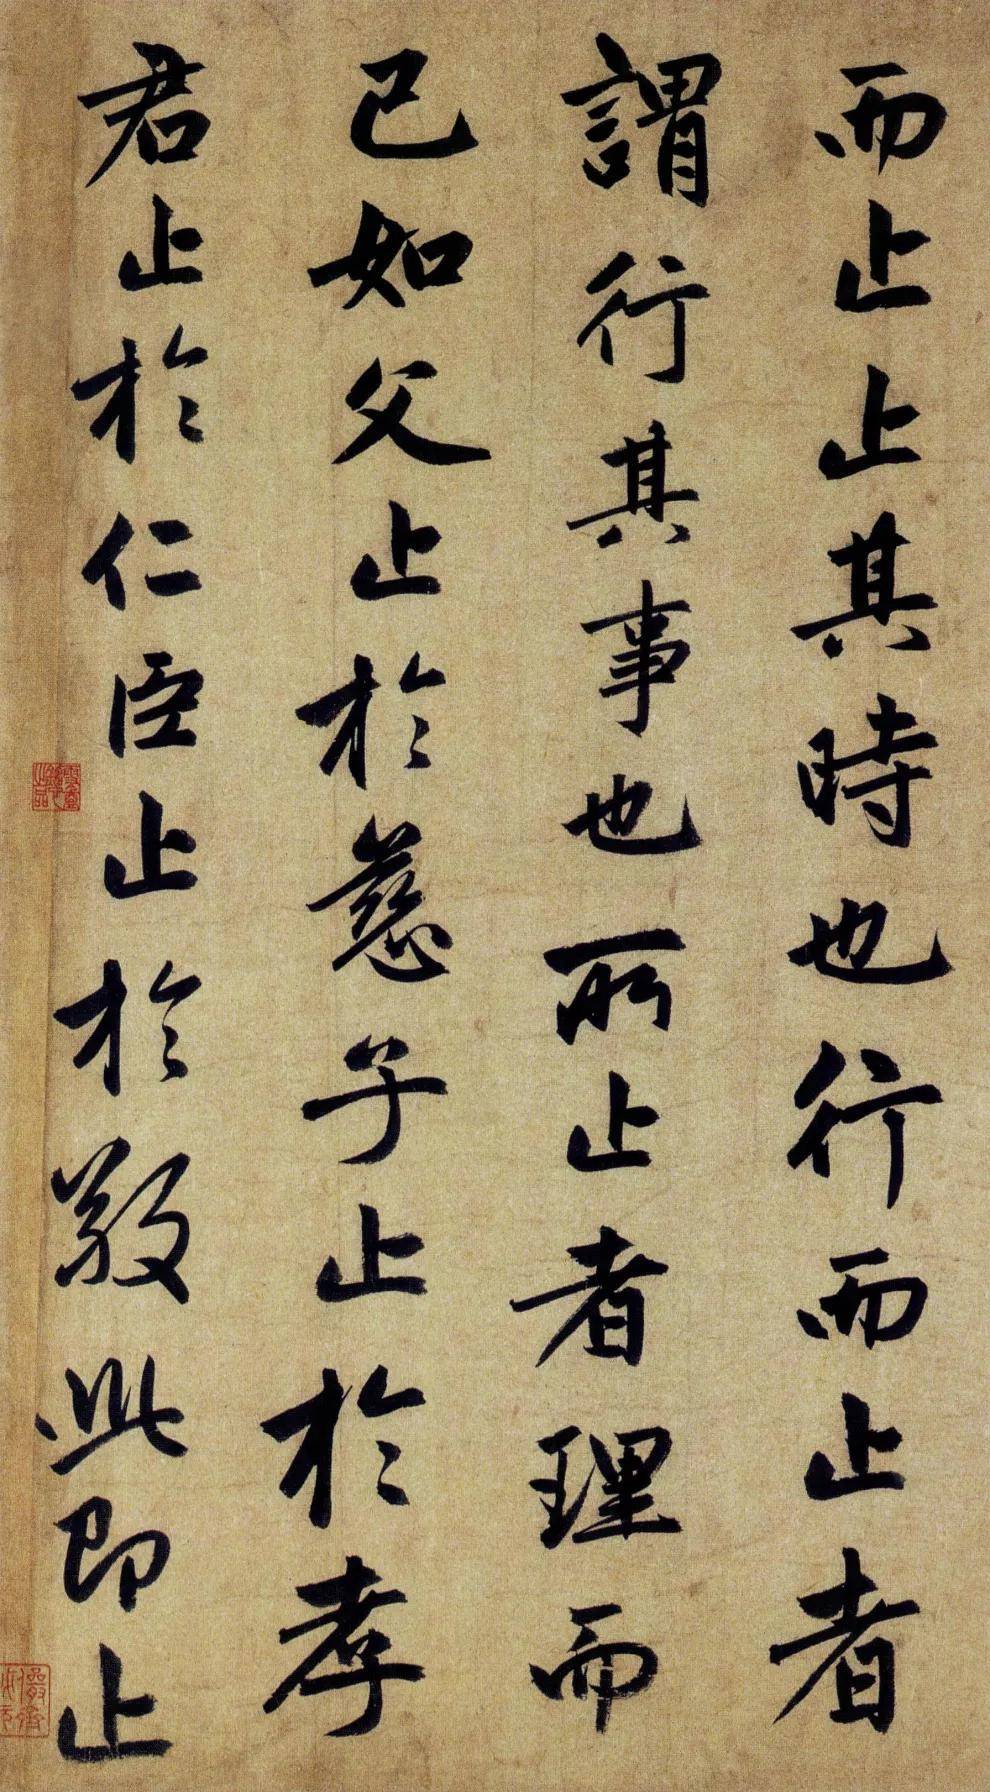 而止止其時也行而止者
謂行其事也所止者理而
已如父止於慈子止於孝
君止於仁臣止於敬此即止